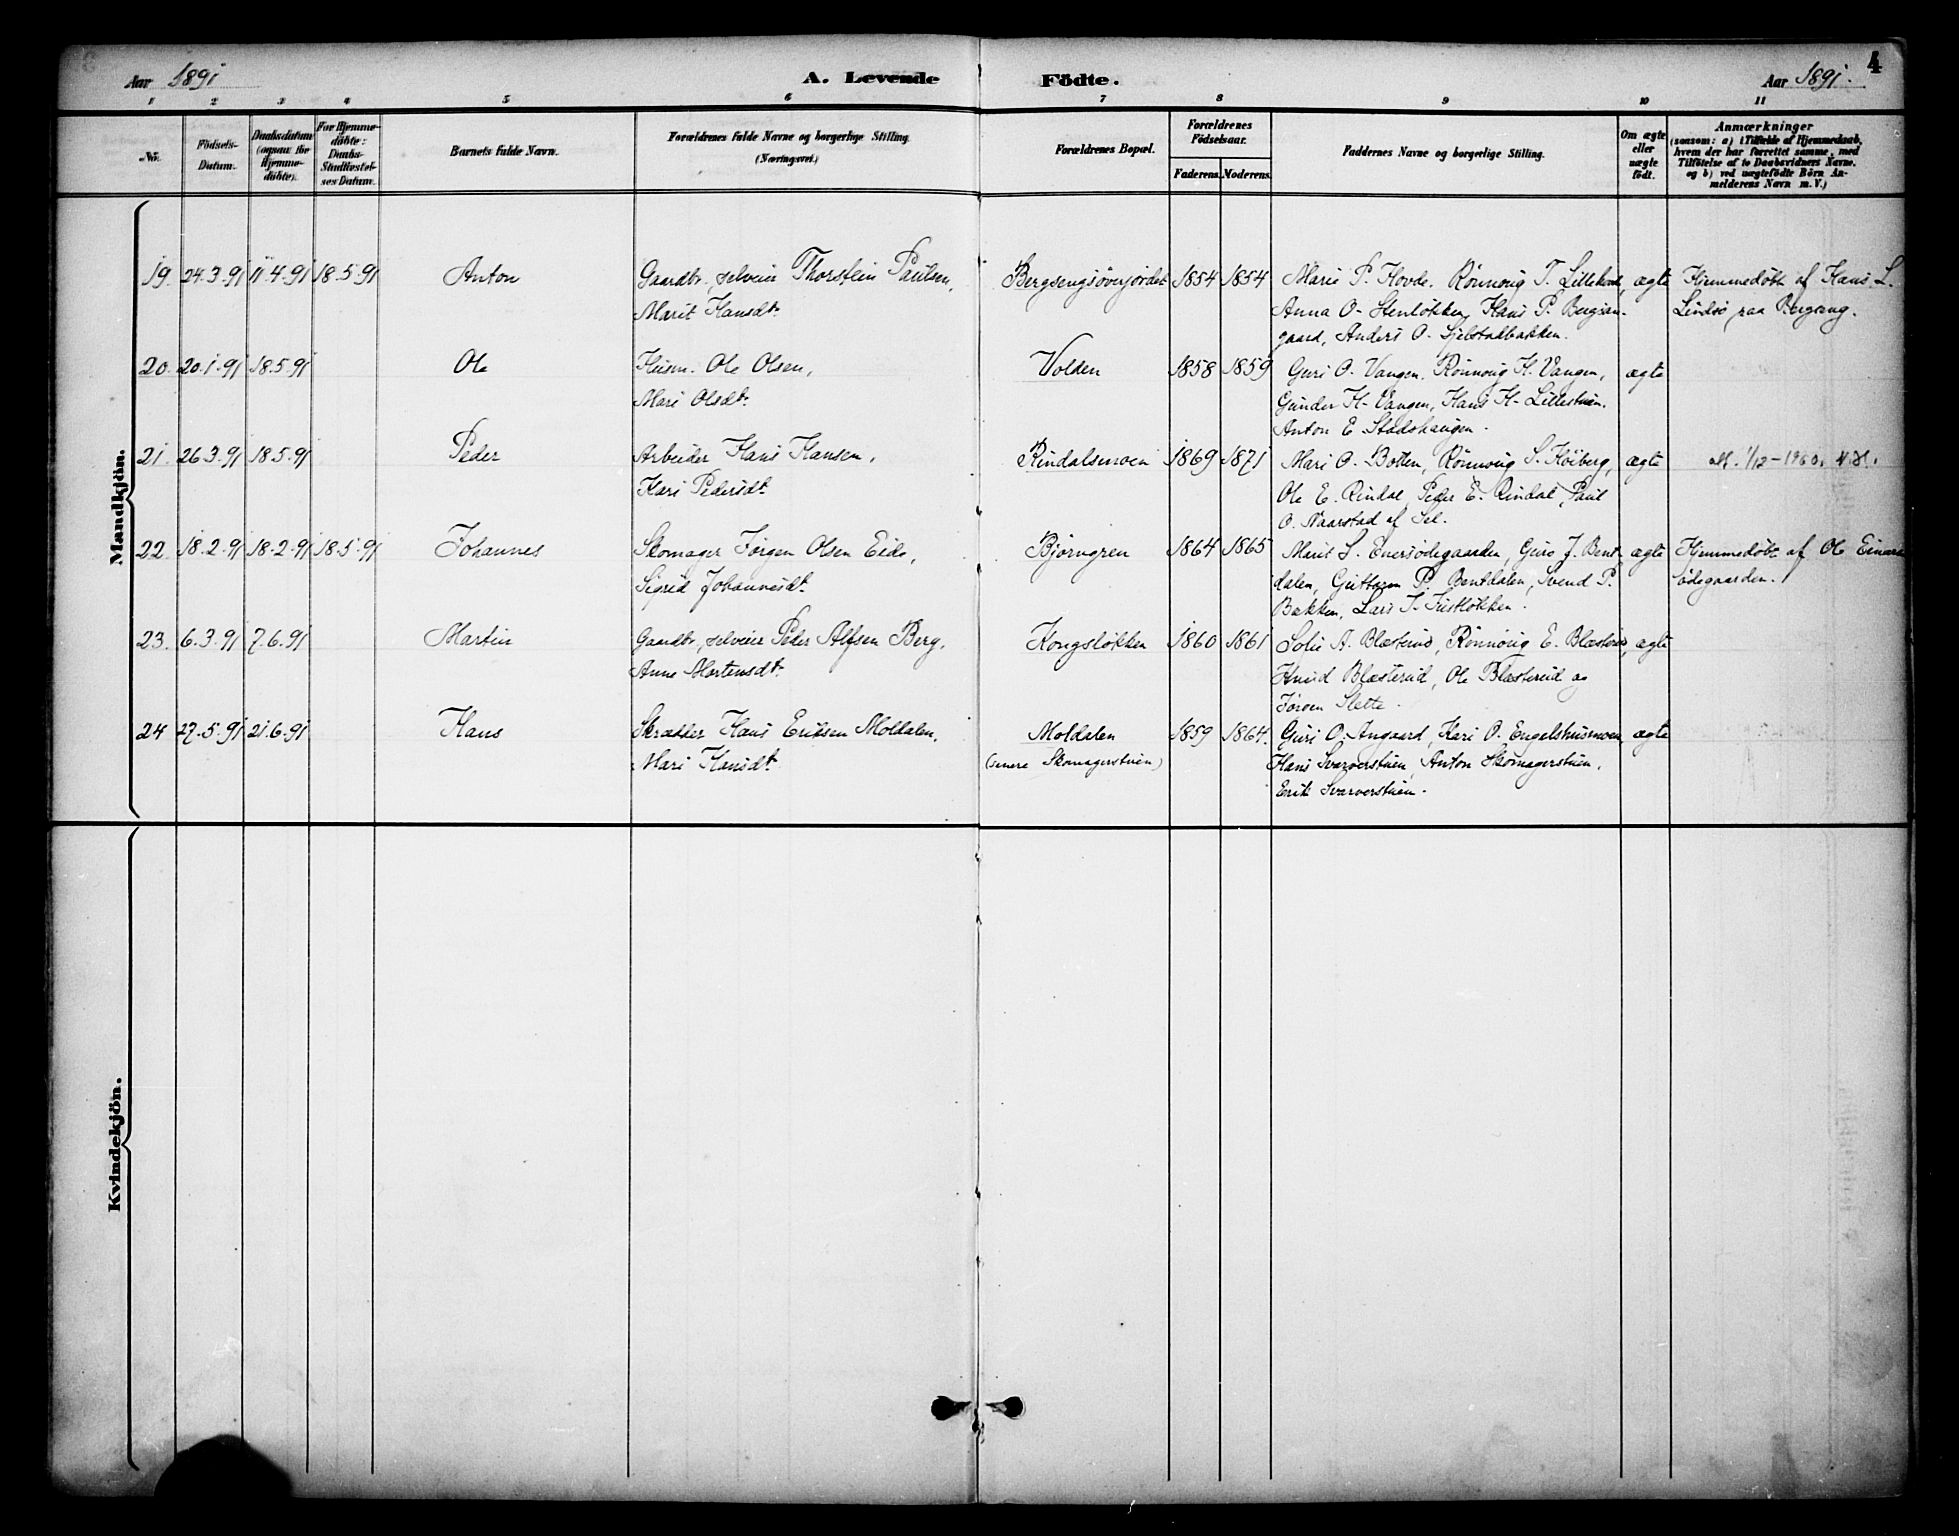 4
Aar 1891
A. Levende Födte.
Aar 1891.
1 2 3 4 5 6 7 8 9 10 11
No.
Födsels-Datum.
Daabsdatum (ogsaa for Hjemme-döbte).
For Hjemme-döbte: Daabs-Stadfæstel-ses Datum.
Barnets fulde Navn.
Forældrenes fulde Navne og borgerlige Stilling.
(Næringsvei.)
Forældrenes Bopæl.
Forældrenes Födselsaar.
Faderens. Moderens.
Faddernes Navne og borgerlige Stilling.
Om ægte eller uægte födt.
Anmærkninger
(saasom: a) i Tilfælde af Hjemmedaab,
hvem der har forrettet samme, med
Tilföielse af to Daabsvidners Navne,
og b) ved uægtefödte Börn An-
melderens Navn m. V.)
Mandkjön.
19. 24.3.91 11.4.91 18.5.91 Anton Gaardbr., selveier Thorstein Paulsen, Bergsengsøverjordet 1854 1854 Marie P. Hovde. Rønnoug T. ægte Hjemmedøbt af Hans L.
Marit Hansdt. Anna O. Stenløkken, Hans P. Bergsen- Lindsø paa Bergseng.
gaard, Anders O. Sjelstadbakken.
20. 20.1.91 18.5.91 Ole Husm. Ole Olsen, Volden 1858 1859 Guri O. Vangen. Rønnoug H. Vangen, ægte
Mari Olsdt. Gunder H. Vangen, Hans H. Lillestuen.
Anton E. Stadshaugen.
21. 26.3.91 18.5.91 Peder Arbeider Hans Hansen, Rindalsmoen 1869 1871 Mari O. Botten, Rønnoug S. Høiberg, ægte 1/12-1960.
Kari Pedersdt. Ole E. Rindal, Peder E. Rindal, Paul
O. Naarstad af Sel.
22. 18.2.91 18.2.91 18.5.91 Johannes Skomager Jørgen Olsen Eide, Bjørngren 1864 1865 Marit S. Enersødegaarden, Guro J. Bent- ægte Hjemmedøbt af Ole
Sigrid Johannesdt. dalen, Guttorm P. Bentdalen, Svend P. ødegaarden.
Bakken, Lars
23. 6.3.91 7.6.91 Martin Gaardbr., selveier Peder Alfsen Berg, Kongsløkken 1860 1861 Sofie A. Blæsterud, Rønnoug E. Blæsterud, ægte
Anne Martensdt. Knud Blæsterud, Ole Blæsterud og
Jørgen Slette.
24 27.5.91 21.6.91 Hans Skrædder Hans Eriksen Moldalen, Moldalen 1859 1864. Guri O. Augaard, Kari O. Engelshusmoen, ægte
Mari Hansdt. (senere Skomagerstuen) Hans Svarverstuen, Anton Skomagerstuen,
Erik Svarverstuen.
Kvindekjön.